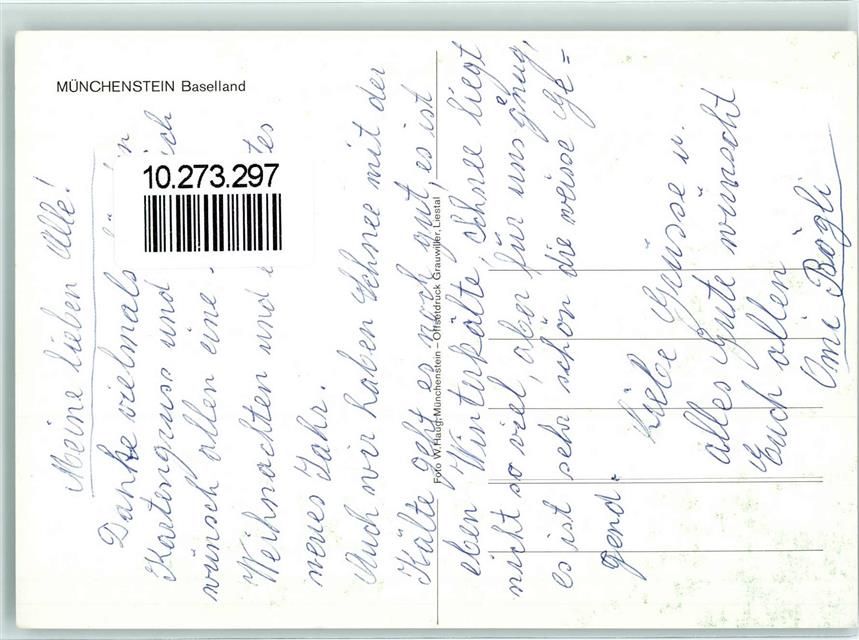 MÜNCHENSTEIN Baselland
10.273.297
Foto W. Haug, Münchenstein – Offsetdruck Grauwiller, Liestal
Meine lieben Alle!
Danke vielmals
Kartengruss und ich
wünsch allen eine
Weihnachten und tes
neues Jahr.
Auch wir haben Schnee mit der
Kälte geht es noch gut, es ist
eben Winterkälte, Schnee liegt
nicht so viel, aber für uns gnug,
es ist sehr schön die weisse Ge=
gend.
Liebe Grüsse u.
alles Gute wünscht
Euch allen
Omi Bögli